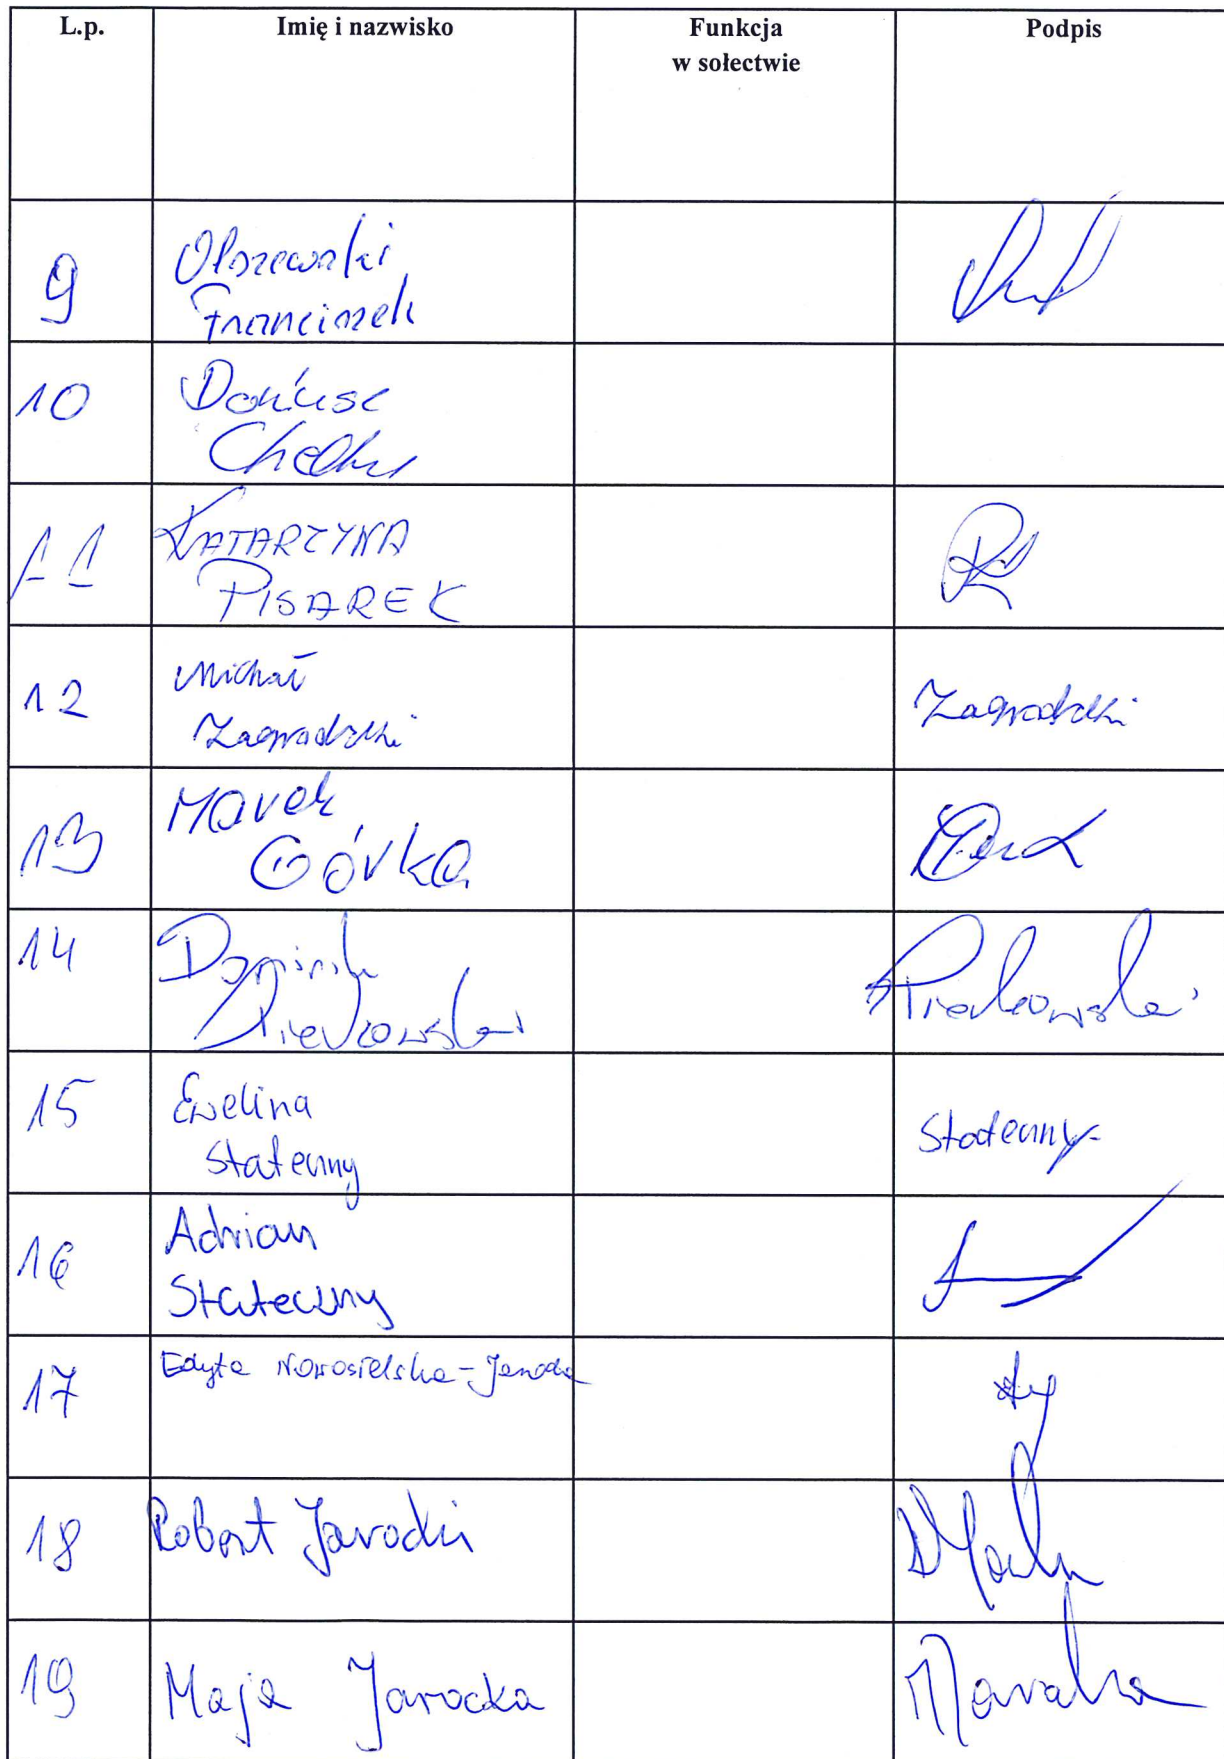 L.p. Imię i nazwisko Funkcja w sołectwie Podpis
9 Olszewski
Franciszek
10 Dariusz
11 KATARZYNA
PISAREK
12 Michał
Zagrodzki Zagrodzki
13 Marek
Górka
14 Dominik
Pieńkowski
15 Ewelina
Stateczny Stateczny
16 Adrian
Stateczny
17 Edyta Nowosielska-Jarocka
18 Robert Jarocki
19 Maja Jarocka